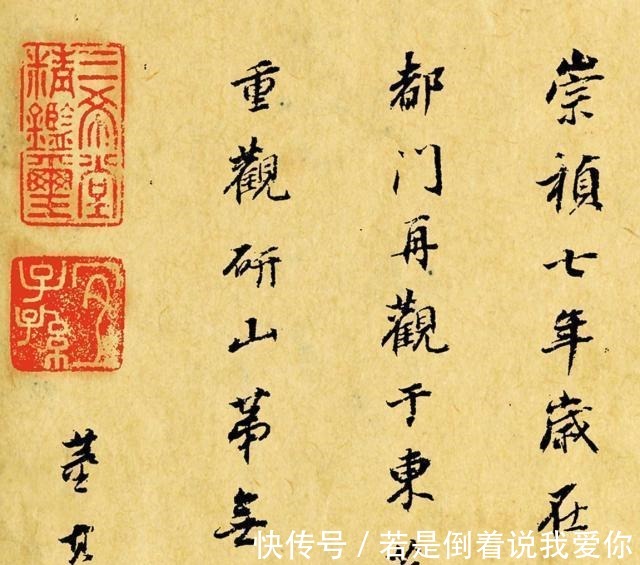 崇禎七年歲在
都门再觀于東
重觀研山苐無
董其
三希堂
精鑑璽
宜
子孫
快传号 / 若是倒着说我爱你